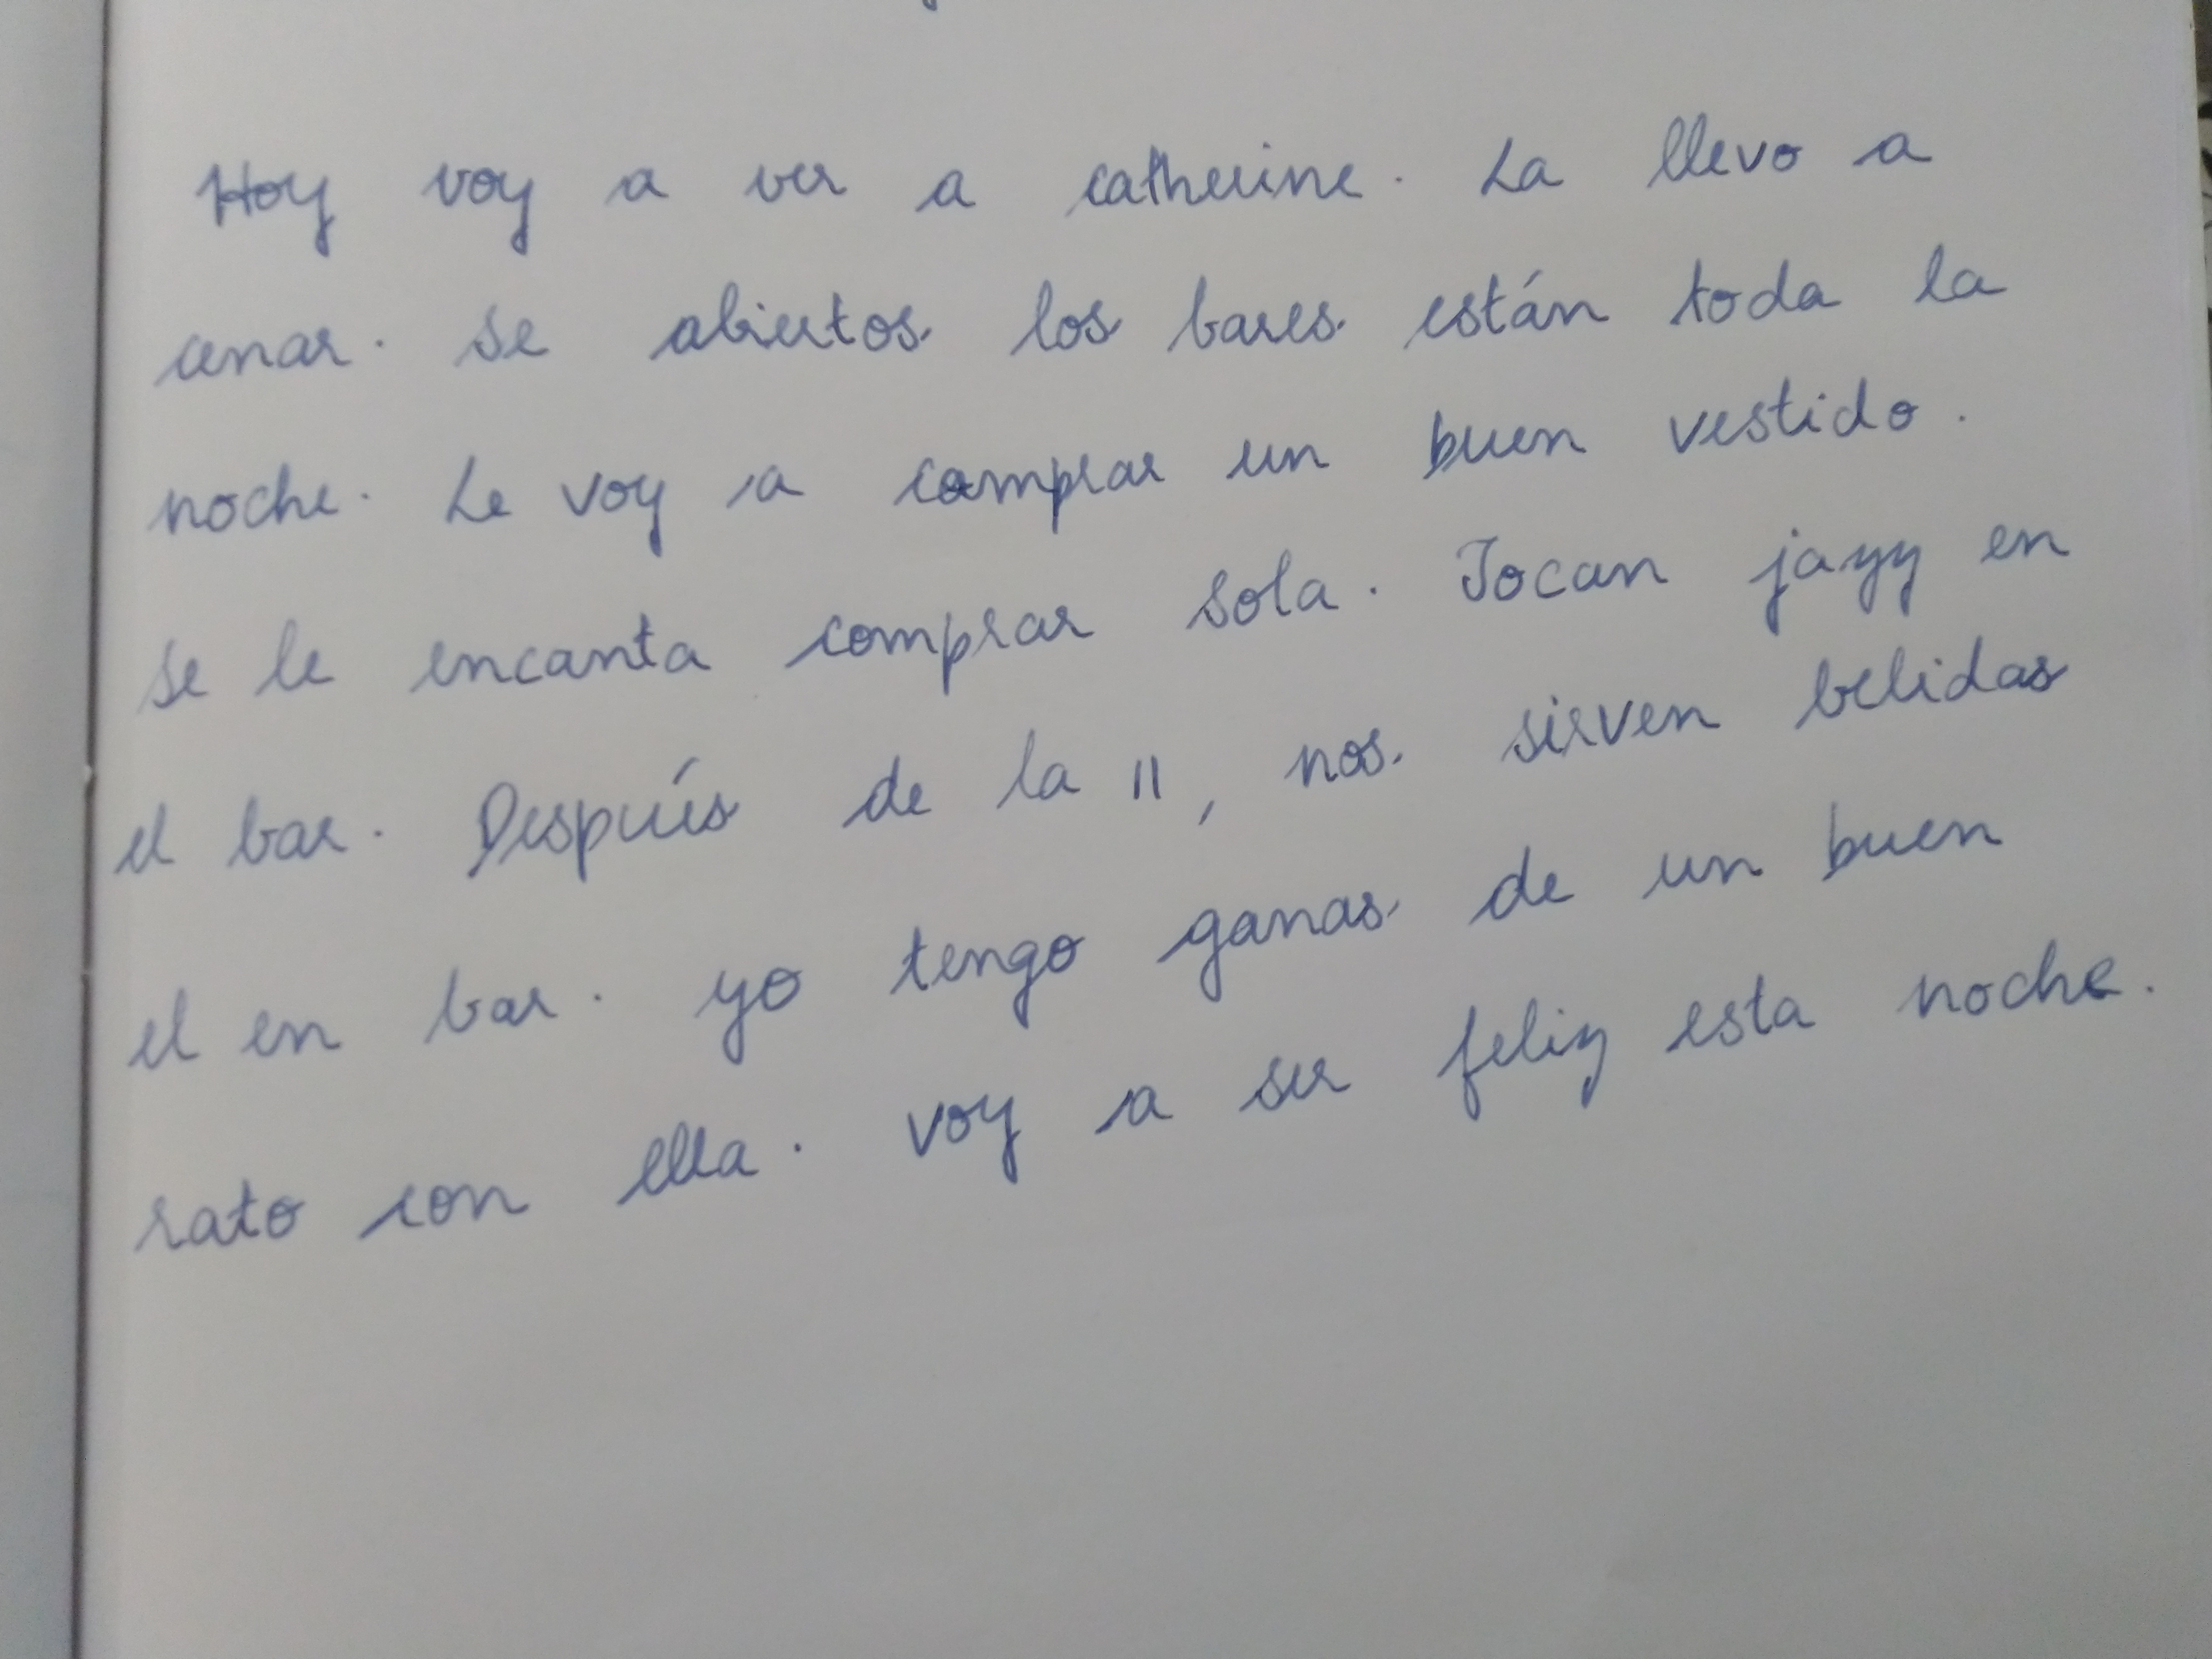 Hoy voy a ver a catherine. La llevo a
cenar. Se abiertos los bares están toda la
noche. Le voy a comprar un buen vestido.
Se le encanta comprar sola. Tocan jazz en
el bar. Después de la 11, nos sirven bebidas
el en bar. yo tengo ganas de un buen
rato con ella. voy a ser feliz esta noche.